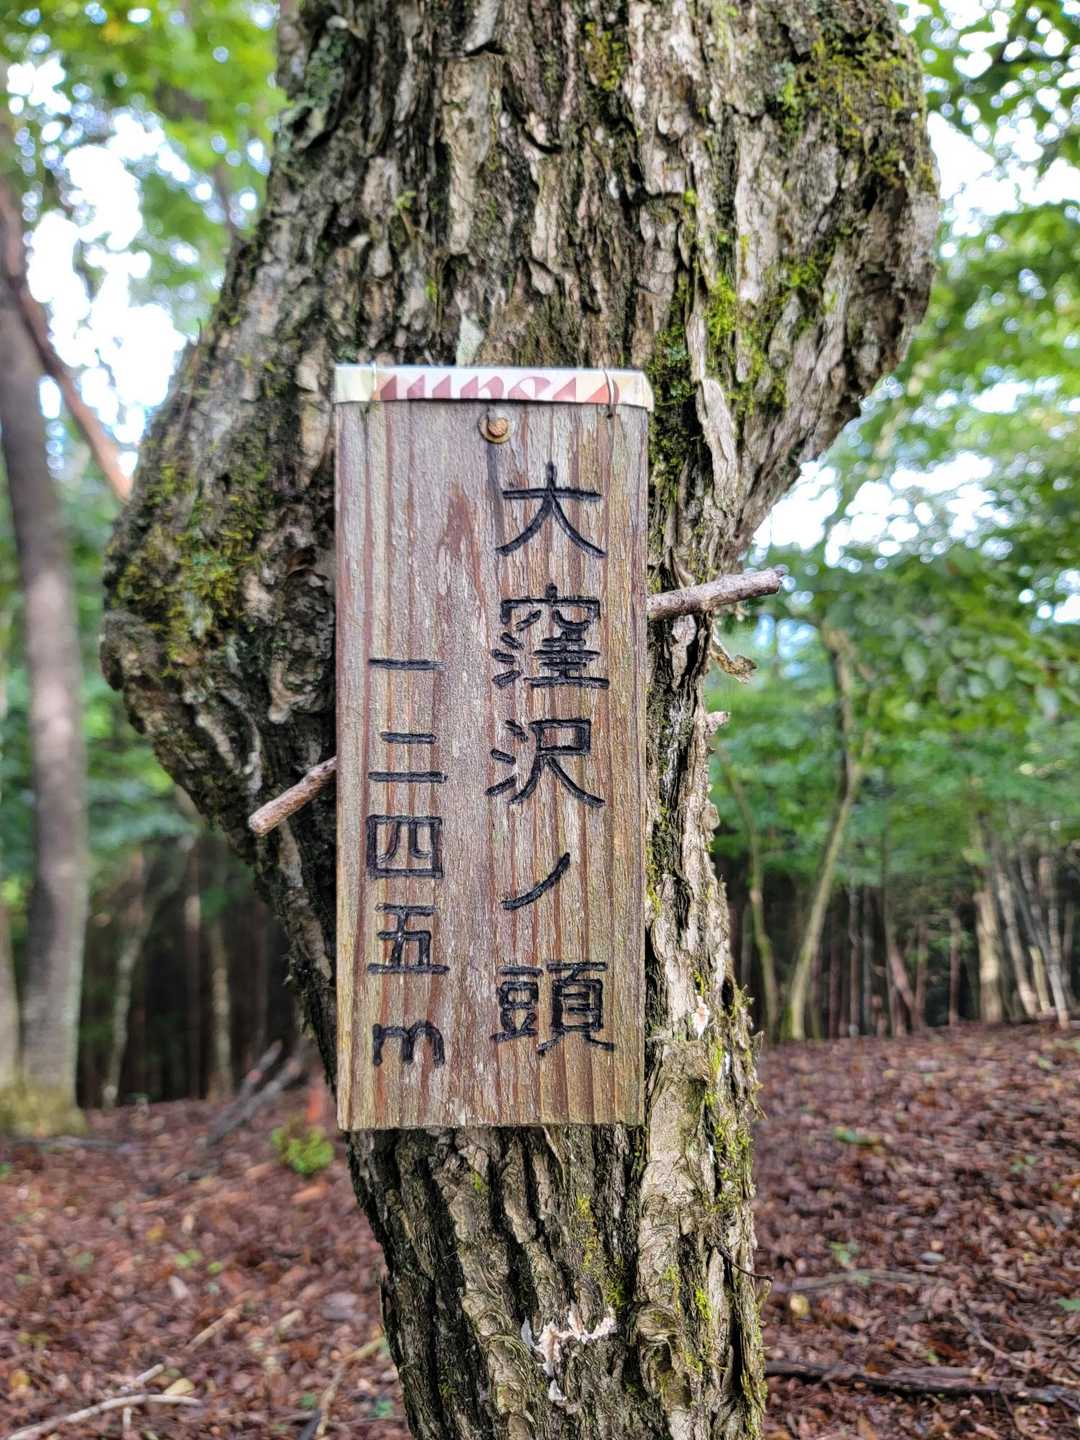 大窪沢ノ頭
一二四五m